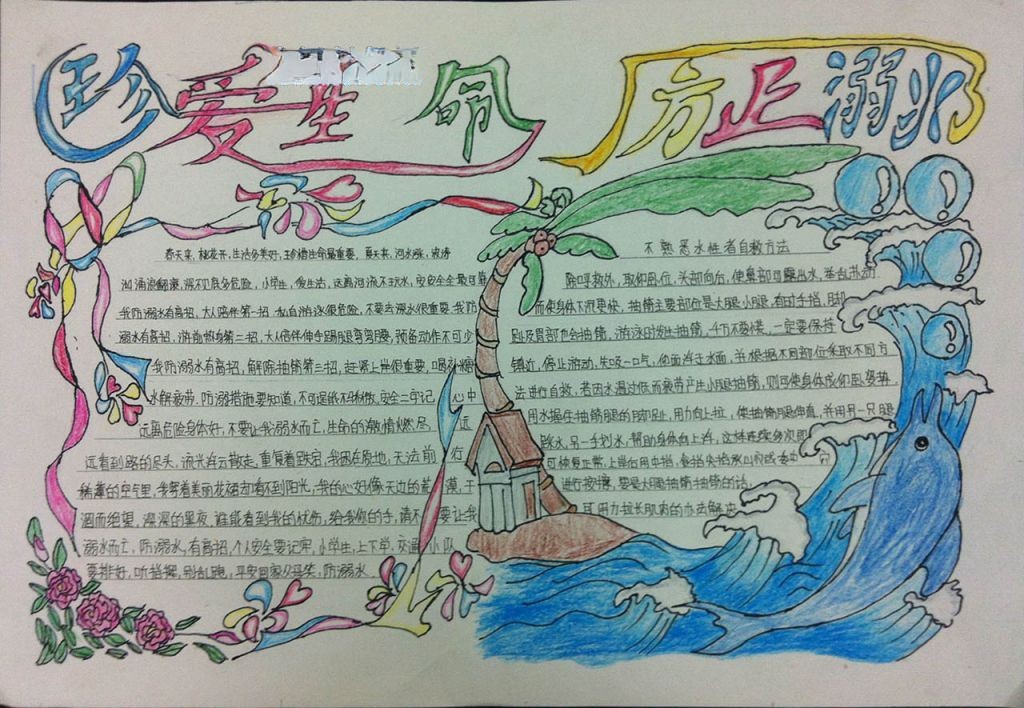 珍爱生命 方止溺水
春天来，桃花开，生活多美好，珍惜生命最重要，夏天来，河水涨，波涛
汹涌浪翻滚，深不见底多危险，小学生，爱生活，远离河流不玩水，安安全全最可靠
我防溺水有高招，大人陪伴第一招，私自游泳很危险，不要去深水很重要，我防
溺水有高招，游前热身第二招，大人陪伴伸手踢腿弯弯腰，预备动作不可少
我防溺水有高招，解除抽筋第三招，赶紧上岸很重要，喝杯糖
水解疲劳，防溺措施要知道，不可逞能不
安全二字记心中
远离危险身体好，不要让我溺水而亡，生命的激情燃尽，远
远看到路的尽头，流光浮云散走，重复着跌宕，我困在原地，无法前行
稀薄的空气里，我穿着美丽花裙却看不到阳光，我的心好像天边的荒漠，干
涸而绝望，深深的黑夜，谁能看到我的忧伤，给我你的手，请不要让我
溺水而亡，防溺水，有高招，个人安全要记牢，小学生，上下学，交通小队
要排好，听指挥，别乱跑，平安回家父母笑，防溺水
不熟悉水性者自救方法
除呼救外，取仰卧位，头部向后，使鼻部可露出水
而使身体下沉更快，抽筋主要部位是大腿小腿，有时手指，脚
趾及胃部也会抽筋，游泳时发生抽筋，千万不要慌，一定要保持
镇近，停止游动，先吸一口气，仰面浮于水面，并根据不同部位采取不同方
法进行自救，若因水温过低而疲劳产生小腿抽筋，则可使身体成仰卧姿势
用水握住抽筋腿的脚趾，用力向上拉，使抽筋腿伸直，并用另一只腿
踩水，另一手划水，帮助身体向上浮，这样连续多次即
可恢复正常，上岸后用中指，食指尖
进行按揉，要是大腿抽筋抽筋的话
用力拉长肌肉的办法解决